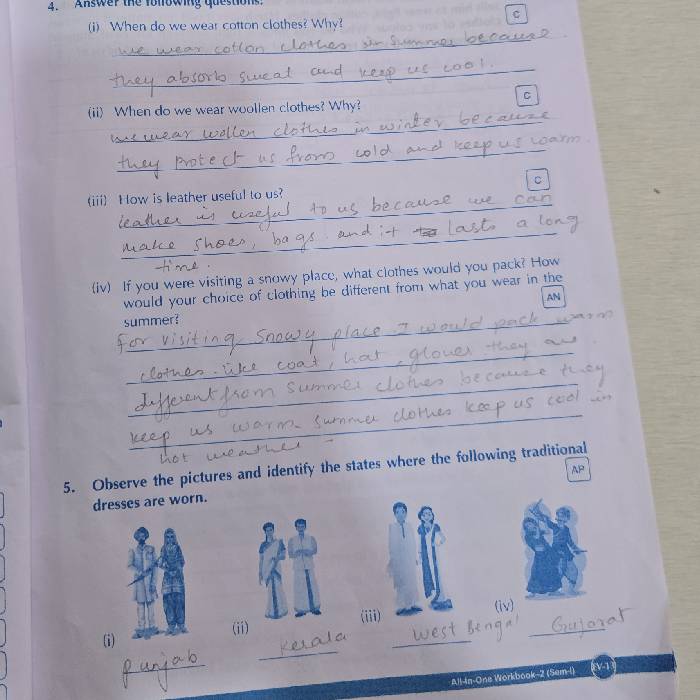 4. Answer the following questions.
(i) When do we wear cotton clothes? Why?
C
we wear cotton clothes in Summer because
they absorb sweat and keep us cool.
(ii) When do we wear woollen clothes? Why?
C
we wear wollen clothes in winter because
they protect us from cold and keep us warm.
(iii) How is leather useful to us?
C
leather is useful to us because we can
make shoes, bags and it lasts a long
time.
(iv) If you were visiting a snowy place, what clothes would you pack? How
would your choice of clothing be different from what you wear in the
summer?
AN
for visiting snowy place I would pack warm
clothes like coat, hat, gloves they are
different from summer clothes because they
keep us warm summer clothes keep us cool in
hot weather
5. Observe the pictures and identify the states where the following traditional
dresses are worn.
AP
(i) (ii) (iii) (iv)
Punjab Kerala West Bengal Gujarat
All-In-One Workbook-2 (Sem-I) EV-13